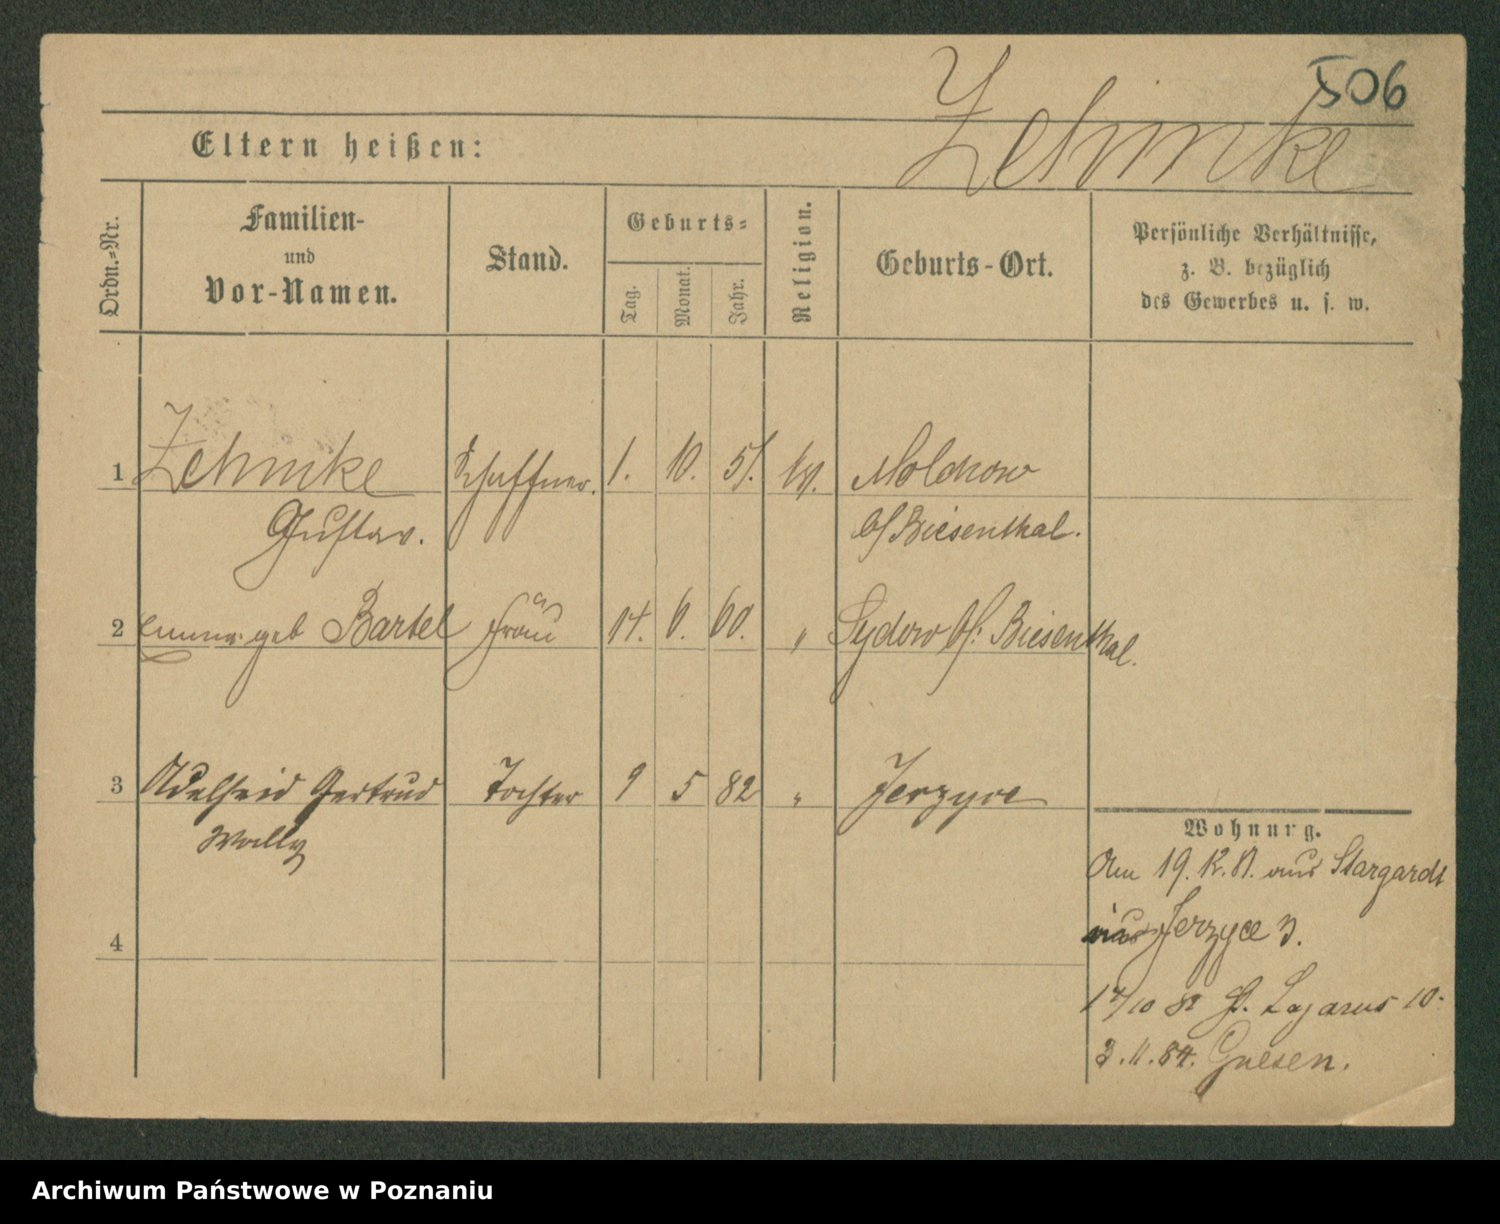 506
Zehmke
Eltern heißen:
Ordn.-Nr.
Familien-
und
Vor-Namen.
Stand.
Geburts-
Tag.
Monat.
Jahr.
Religion.
Geburts-Ort.
Persönliche Verhältnisse,
z. B. bezüglich
des Gewerbes u. s. w.
1 Zehmke Schaffner. 1. 10. 51. ev. Melchow
Gustav. b/ Biesenthal.
2 Emma geb Bartel Frau 14. 6. 60. " Sydow b/: Biesenthal.
3 Adelheid Gertrud Tochter 9 5 82 " Jerzyce
Wally
Wohnung.
Am 19. 12. 81. aus Stargardt
Jerzyce 3.
17/10 82 St. Lazarus 10.
3. 11. 84. Gnesen.
4
Archiwum Państwowe w Poznaniu